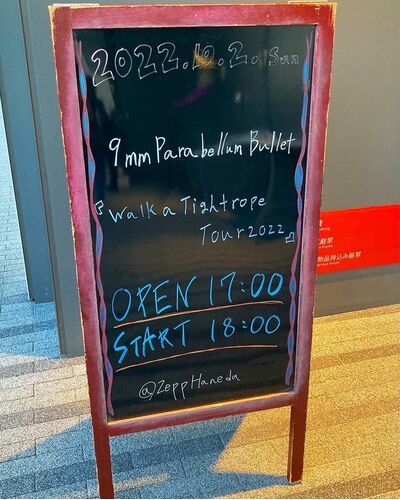 2022.10.2. Sun
9mm Parabellum Bullet
『Walk a Tightrope
Tour2022』
OPEN 17:00
START 18:00
@ZeppHaneda
厳禁
物品持込み厳禁